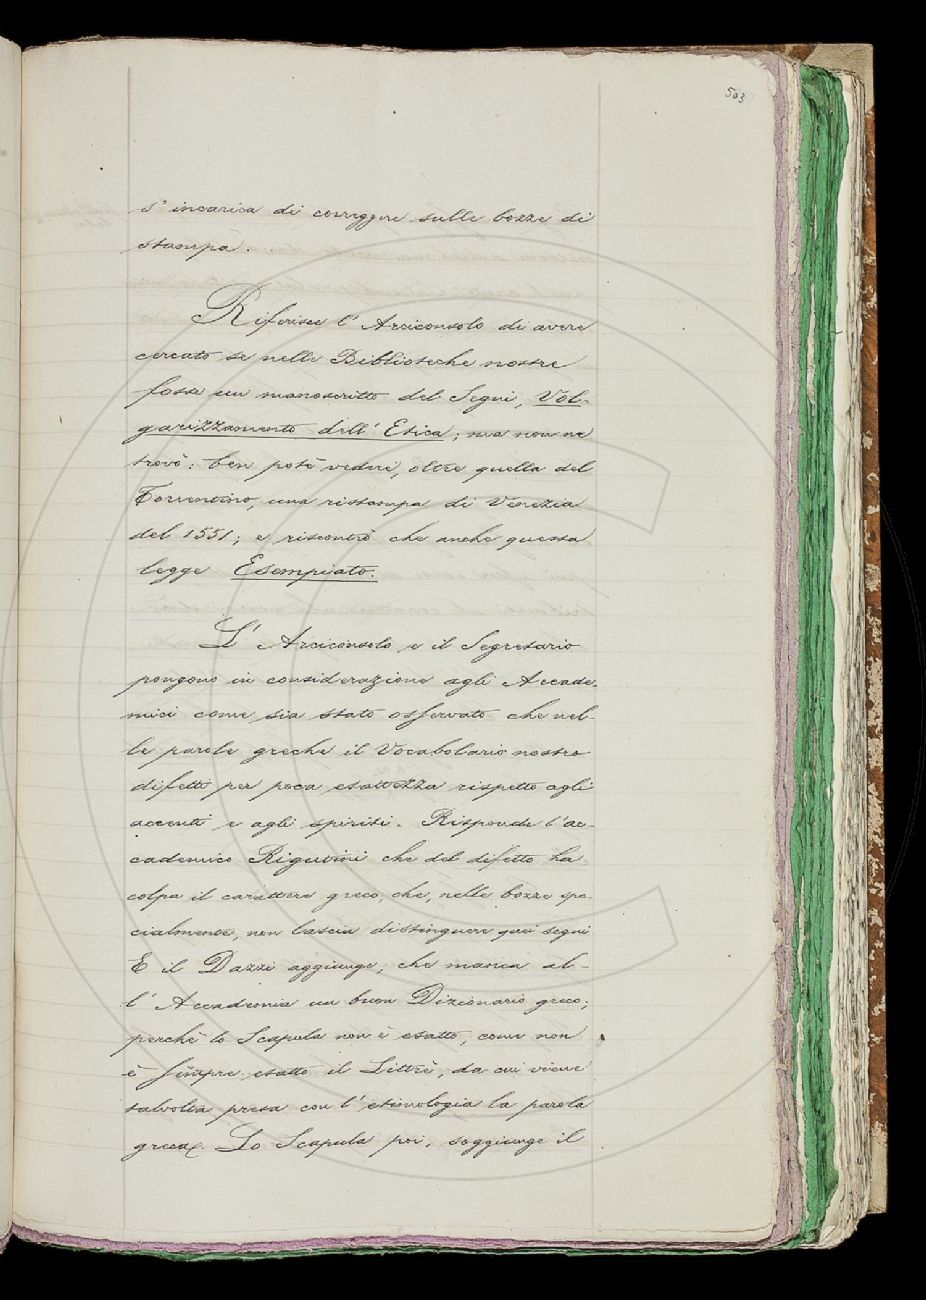 503
s' incarica di correggere sulle bozze di
stampa.
Riferisce l' Arciconsolo di avere
cercato se nelle Biblioteche nostre
fosse un manoscritto del Segni, Vol-
garizzamento dell' Etica; ma non ne
trovò: ben potè vedere, oltre quella del
Torrentino, una ristampa di Venezia
del 1551; e riscontrò che anche questa
legge Esempiato.
L' Arciconsolo e il Segretario
pongono in considerazione agli Accade-
mici come sia stato osservato che nel-
le parole greche il Vocabolario nostro
difetti per poca esattezza rispetto agli
accenti e agli spiriti. Risponde l' ac-
cademico Rigutini che del difetto ha
colpa il carattere greco, che, nelle bozze spe-
cialmente, non lascia distinguere quei segni
E il Dazzi aggiunge, che manca al-
l' Accademia un buon Dizionario greco;
perchè lo Scapula non è esatto, come non
è sempre esatto il Littrè, da cui viene
talvolta presa con l' etimologia la parola
greca. Lo Scapula poi, soggiunge il